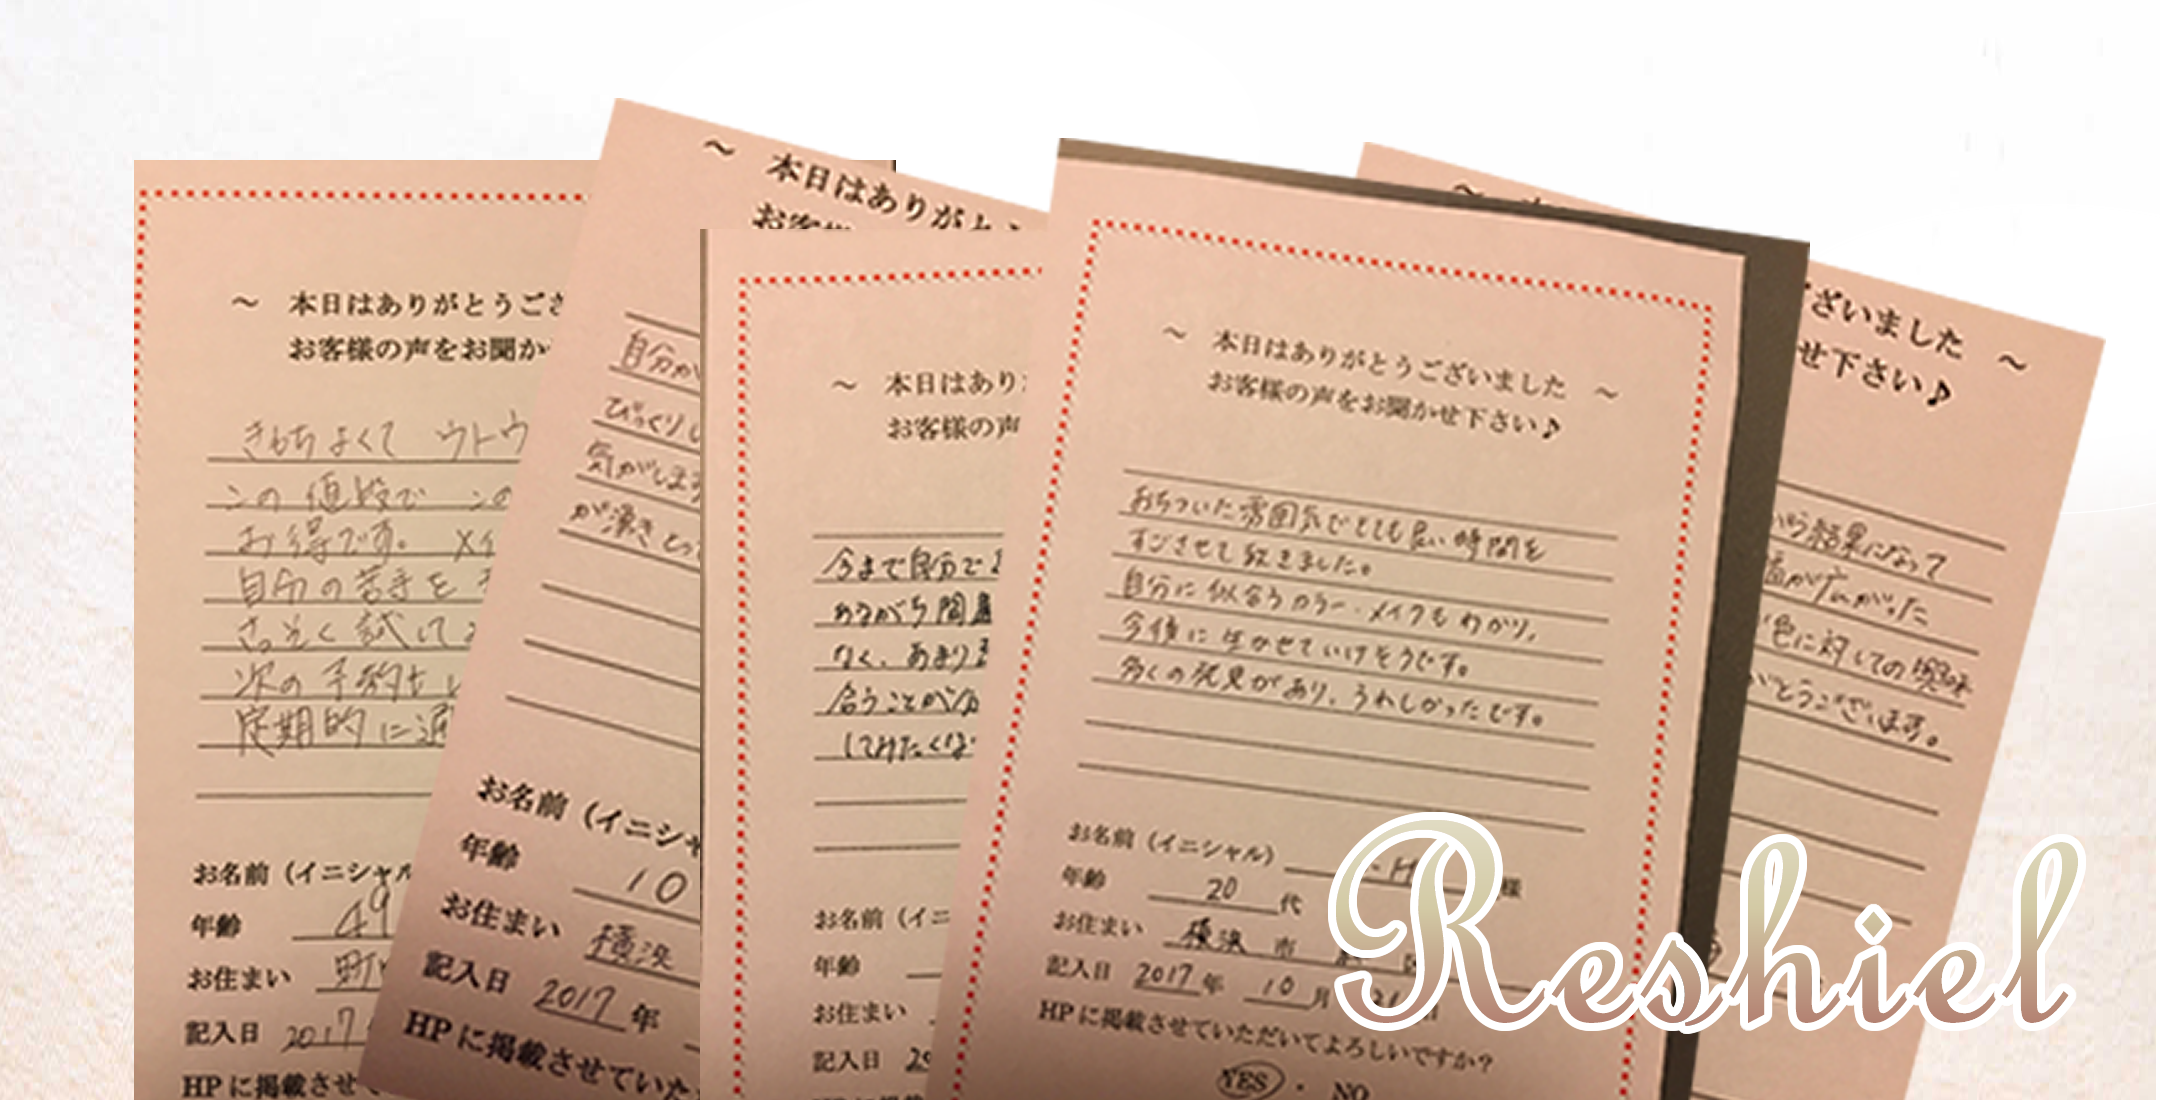 ～ 本日はありがとうござ
お客様の声をお聞か
きもちよくて ウトウ
この値段で この
お得です。 メイ
自分の苦手を
さっそく試して
次の予約もし
定期的に通
お名前（イニシャル
年齢 49
お住まい 町
記入日 2017
HPに掲載させて
～ 本日はありがとう
お客様
自分が
びっくりし
気がします
が湧きとっ
お名前（イニシャ
年齢 10
お住まい 横浜
記入日 2017 年
HPに掲載させていた
～ 本日はあり
お客様の声
今まで自分で
ながら間
なく、あまり
合うことが分
してみたくな
お名前（イニ
年齢
お住まい
記入日
～ 本日はありがとうございました ～
お客様の声をお聞かせ下さい♪
おちついた雰囲気でとても良い時間を
すごさせて頂きました。
自分に似合うカラー・メイクもわかり、
今後に生かせていけそうです。
多くの発見があり、うれしかったです。
お名前（イニシャル） ・H 様
年齢 20 代
お住まい 横浜 市 区
記入日 2017 年 10 月 日
HPに掲載させていただいてよろしいですか？
YES ・ NO
ざいました ～
せ下さい♪
から結果になって
幅が広がった
色に対しての興味
がとうございます。
Reshiel